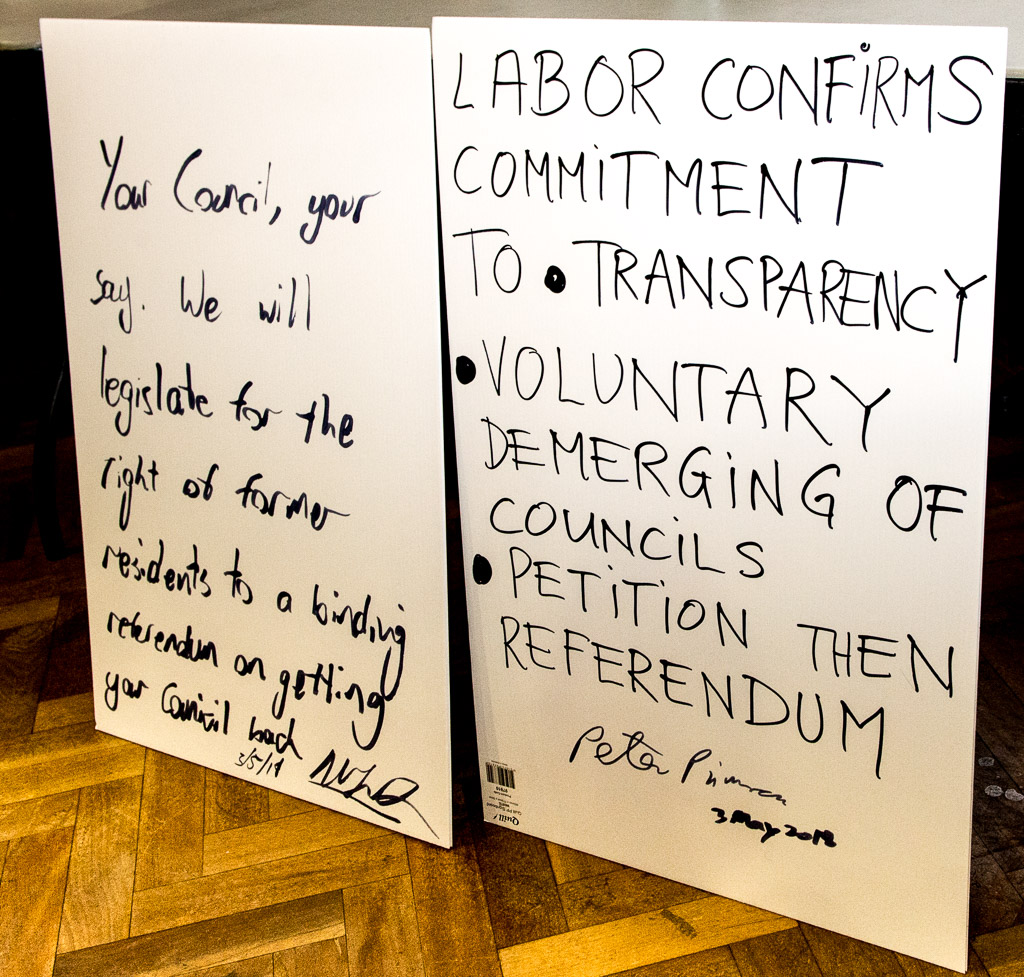 Your Council, your
say. We will
legislate for the
right of former
residents to a binding
referendum on getting
your Council back
LABOR CONFiRMS
COMMiTMENT
TO • TRANSPARENCY
• VOLUNTARY
DEMERGiNG OF
COUNCiLS
• PETiTiON THEN
REFERENDUM
Peter
3 May 2018
Quill